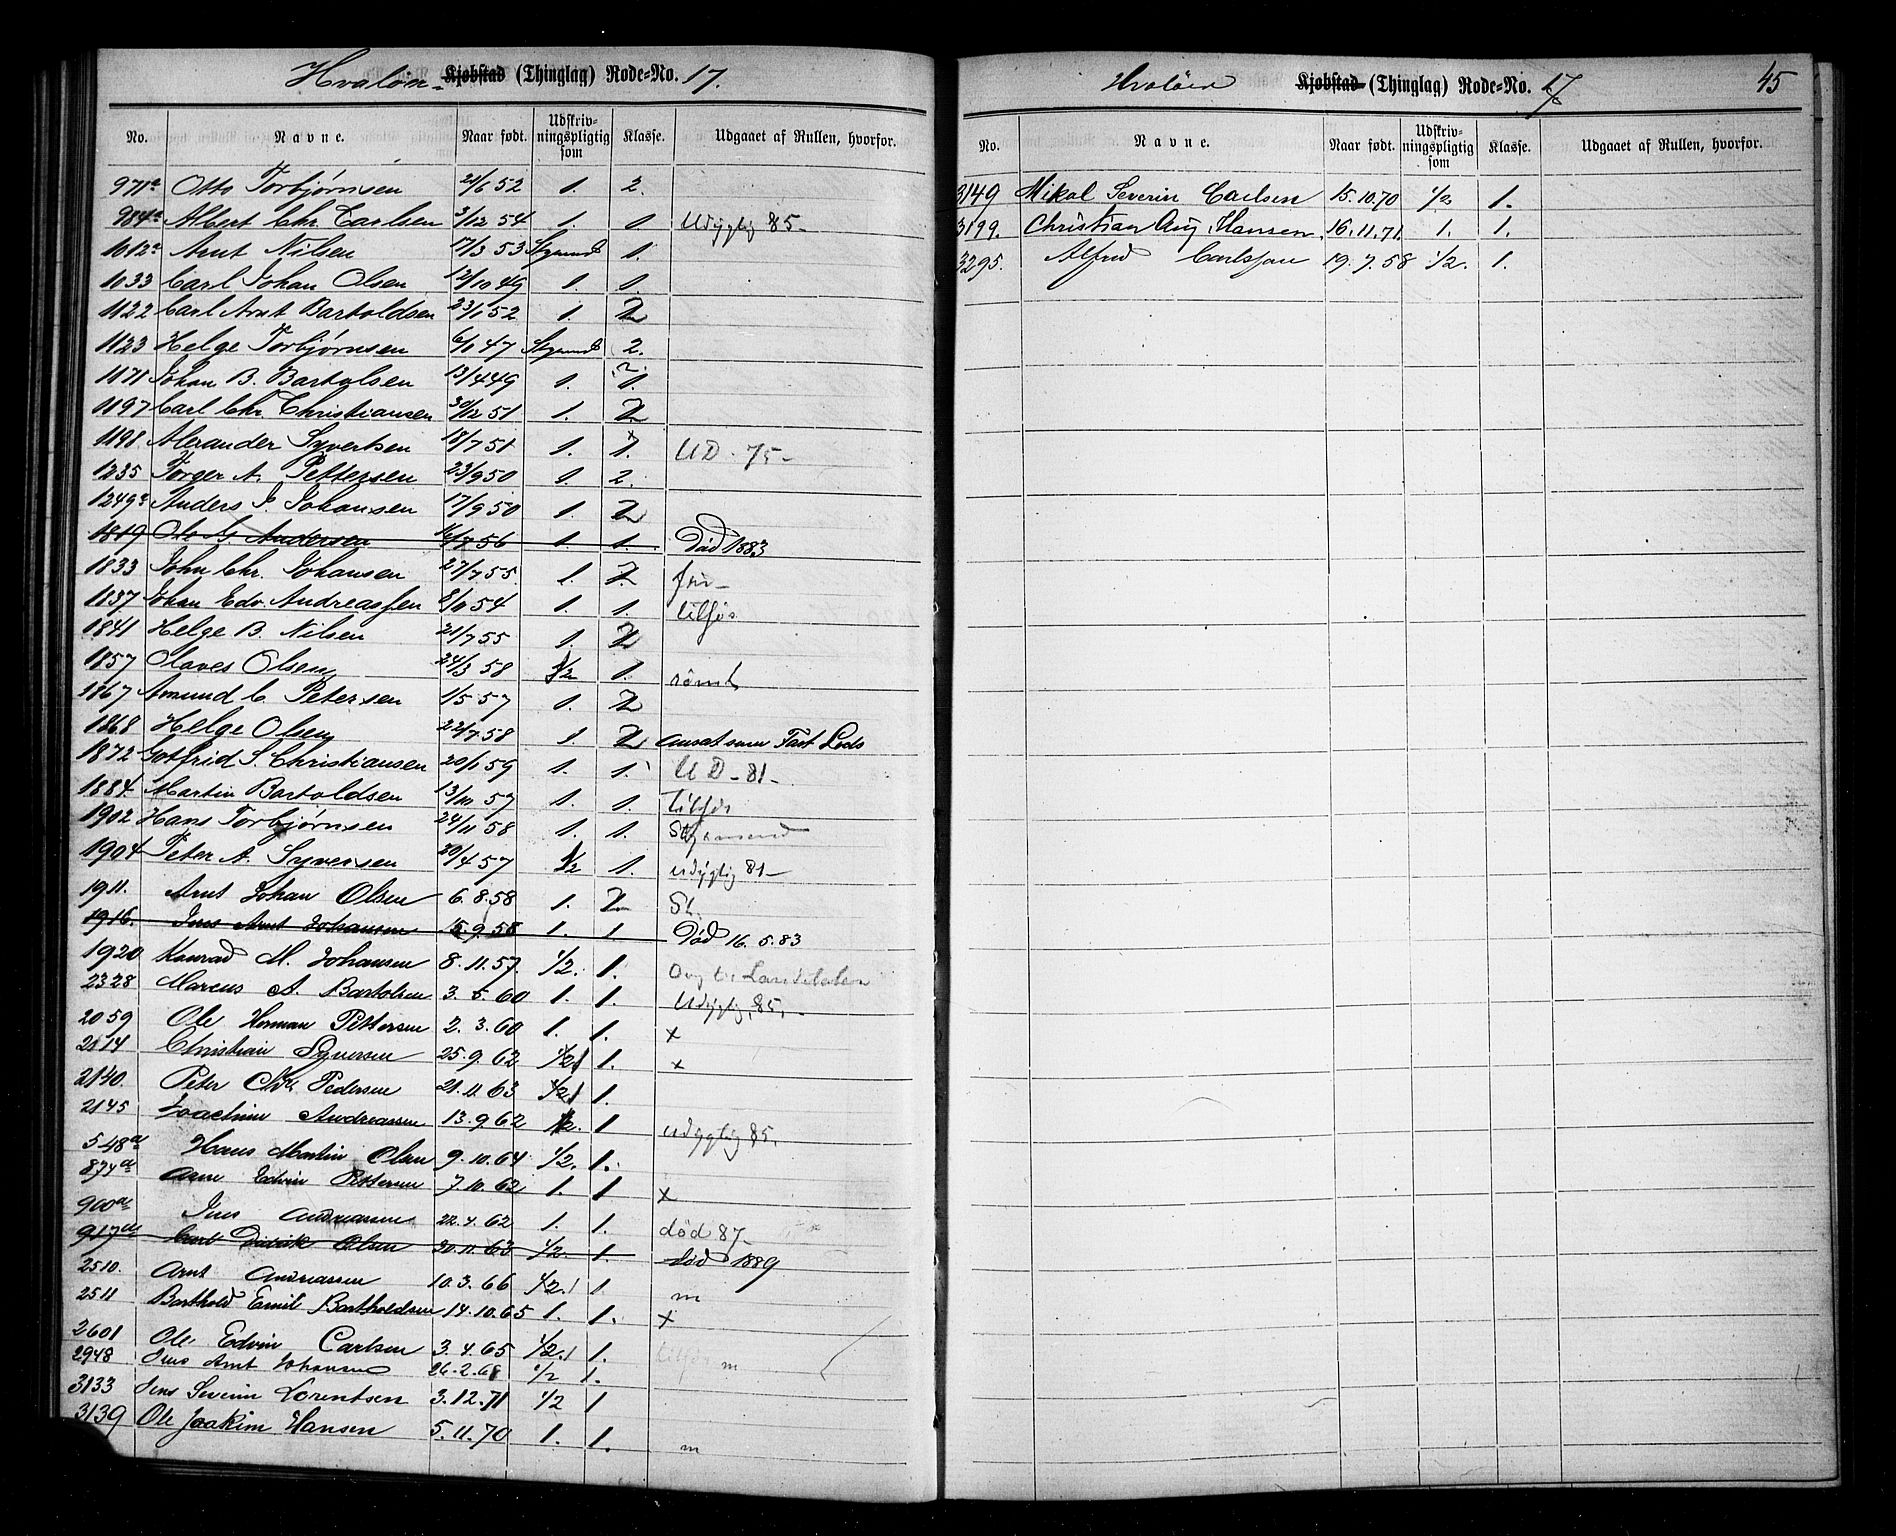 Hvaløn Kjøbstad (Thinglag) Rode-No. 17.
No. Navne. Naar født. Udskrivningspligtig som Klasse. Udgaaet af Rullen, hvorfor.
971a Otto Torbjørnsen 21/6 52 1. 2.
984a Albert Chr. Carlsen 3/12 54 1. 1. Udygtig 85-
1012a Arnt Nilsen 17/3 53 1.
1033 Carl Johan Olsen 12/10 49 1. 1.
1122 Carl Arnt Bartoldsen 23/1 52 1. 2
1123 Helge Torbjørnsen 6/1 47 2.
1171 Johan B. Bartolsen 13/4 49 1. 1.
1197 Carl Chr. Christiansen 30/12 51 1. 2
1198 Alexander Syvertsen 18/7 51 1. 1. UD. 75-
1235 Torger A. Pettersen 23/9 50 1. 2.
1249a Anders J. Johansen 17/9 50 1. 2
1819 Ole A. Andersen 56 1. 1. Død 1883
1833 John Chr. Johansen 27/7 55 1. 2
1837 Johan Edv. Andreassen 54 1. 1. tilsjøs
1841 Helge B. Nilsen 21/7 55 1. 2
1857 Claves Olsen 24/3 58 1/2 1. rømt
1867 Amund C. Petersen 1/5 57 1. 2
1868 Helge Olsen 22/7 58 1. 2 Ansat som Fast Lods
1872 Gotfrid S. Christiansen 20/1 59 1. 1. UD-81-
1884 Martin Bartoldsen 13/10 57 1. 1. tilsjøs
1902 Hans Torbjørnsen 24/11 58 1. 1.
1904 Peter A. Syversen 20/4 57 1/2 1. udygtig 81-
1911. Arnt Johan Olsen 6.8.58 1. 2 St.
1916. Jens Arnt Johansen 15.9.58 1. 1 Død 16.5.83
1920 Konrad M. Johansen 8.11.57. 1/2. 1.
2328 Marcus A. Bartolsen 3.5.60 1. 1. Udygtig, 85,-
2059 Ole Herman Pettersen 2.3.60 1. 1. x
2114 Christian Syversen 25.9.62 1/2 1 1. x
2140. Peter Chr. Pedersen 21.11.63 1/2 1 1.
2145 Joachim Andreassen 13.9.62 1/2. 1 udygtig 85.
548a Hans Martin Olsen 9.10.64 1/2. 1.
874a Arne Edvin Pettersen 7.10.62 1. 1 x
900a Jens Andreassen 22.4.62 1. 1. død 87-
917a Carl Didrik Olsen 30.11.63 1/2. 1. død 1889
2510. Arnt Andreassen 10.3.66 1/2.1 1 m
2511 Barthold Emil Bartholdsen 14.10.65 1. 1. x
2601 Ole Edvin Carlsen 3.4.65 1/2.1 1. tilsjøs m
2948 Jens Arnt Johansen 26.2.68 1/2 1.
3133 Jens Severin Lorentsen 3.12.71 1/2 1
3139 Ole Joakim Hansen 5.11.70 1. 1. m
Hvaløen Kjøbstad (Thinglag) Rode-No. 17 45
No. Navne. Naar født. Udskrivningspligtig som Klasse. Udgaaet af Rullen, hvorfor.
3149 Mikal Severin Carlsen 15.10.70 1/2 1.
3199. Christian Aug. Hansen. 16.11.71 1. 1.
3295. Alfred Carlsson 19.7.58 1/2. 1.